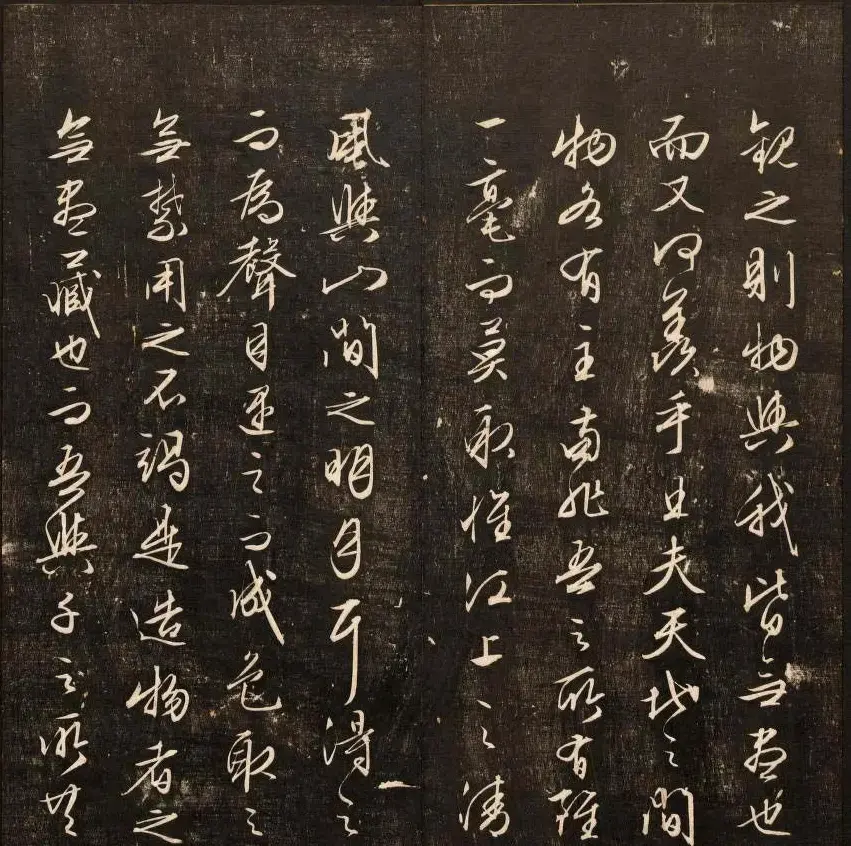 觀之則物與我皆無盡也
而又何羨乎且夫天地之間
物各有主茍非吾之所有雖
一毫而莫取惟江上之清
風與山間之明月耳得之
而為聲目遇之而成色取之
無禁用之不竭是造物者之
無盡藏也而吾與子之所共